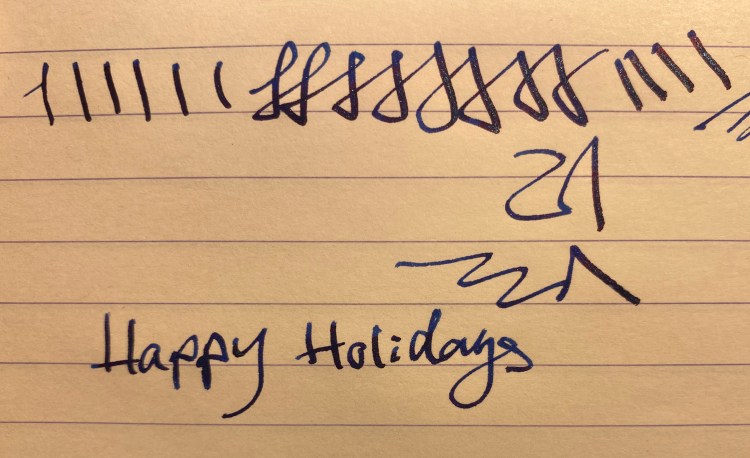 Happy Holidays